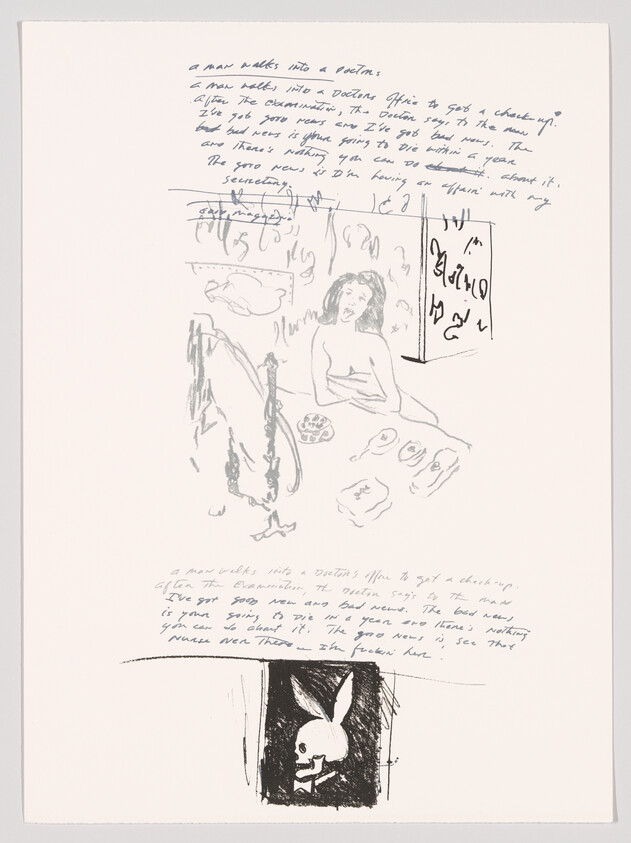 a man walks into a Doctors
a man walks into a Doctors Office to get a check up.
After The examination, The Doctor says to the man
I've got good news and I've got bad news. The
bad bad news is your going to Die within a year
and there's nothing you can do about it. about it.
The good news is I'm having an affair with my
secretary.
a man walks into a Doctor's office to get a check-up.
after The Examination, the Doctor says to the man
I've got good new and bad news. The bad news
is your going to Die in a year and there's nothing
you can do about it. The good news is, see that
nurse over There I'm fuckin her.